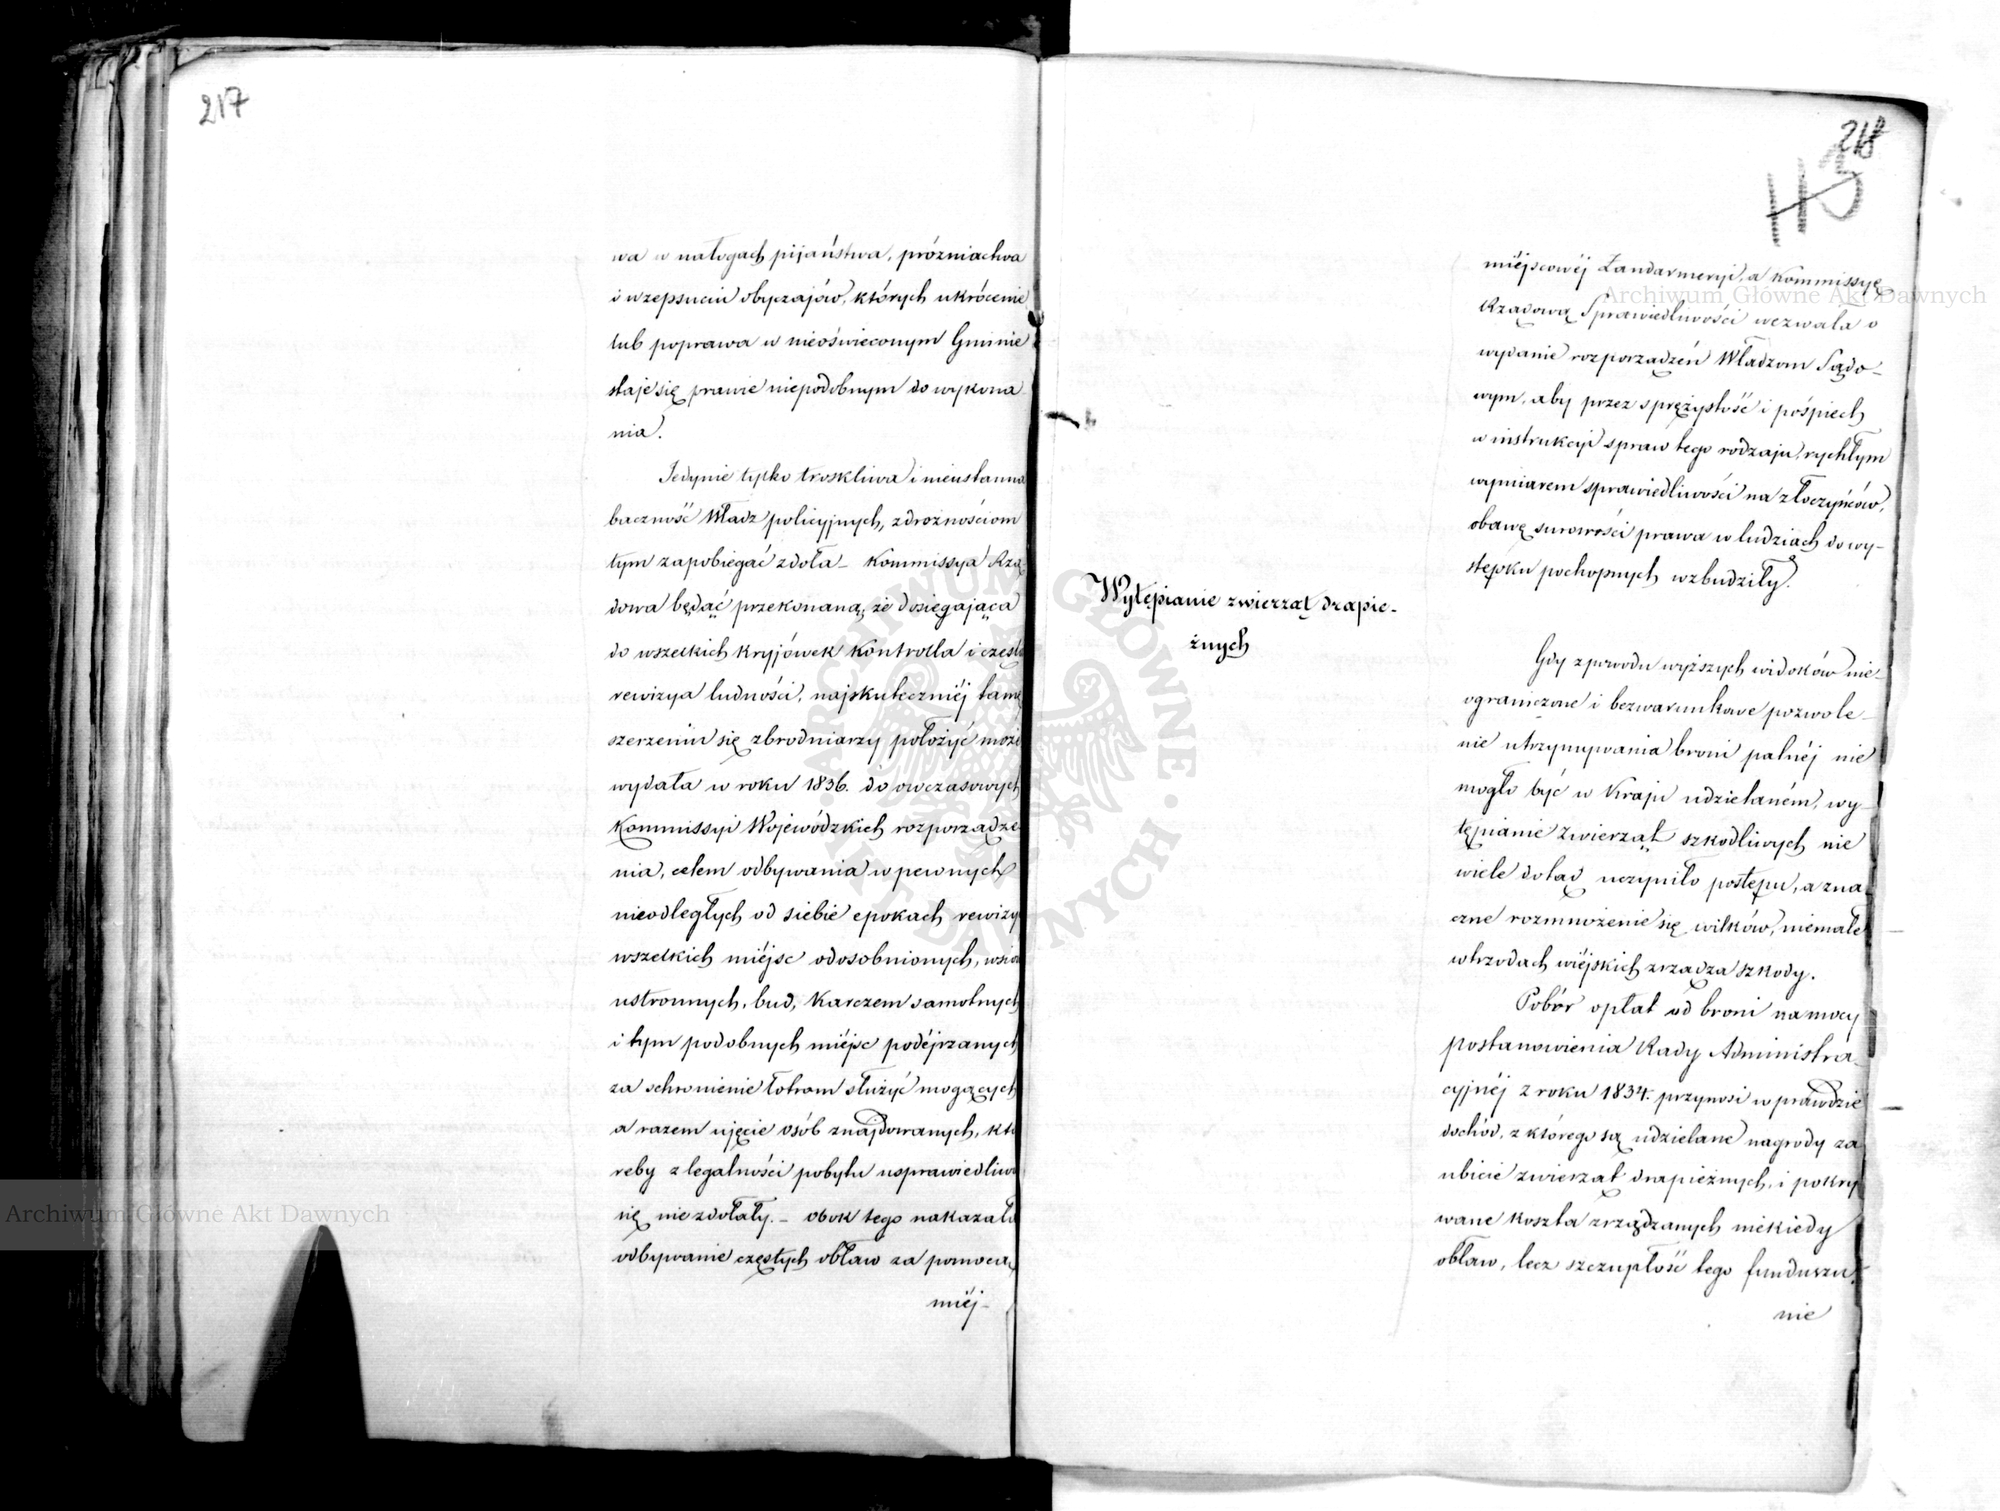 217
wa w nałogach pijaństwa, próżniactwa
i w zepsuciu obyczajów, których ukrócenie
lub poprawa w nieoświeconym Gminie
staje się prawie niepodobnym do wykona-
nia.
Jedynie tylko troskliwa i nieustanna
baczność Władz policyjnych, zdrożnościom
tym zapobiegać zdoła – Kommissya Rzą-
dowa będąc przekonaną, że dosięgająca
do wszelkich kryjówek kontrolla i częsta
rewizya ludności, najskuteczniéj tamę
szerzeniu się zbrodniarzy położyć może
wydała w roku 1836. do owczasowych
Kommissyi Wojewódzkich rozporządze-
nia, celem odbywania w pewnych
nieodległych od siebie epokach rewizyi
wszelkich miéjsc odosobnionych, wsiów
ustronnych, bud, Karczem samotnych
i tym podobnych miéjsc podéjrzanych
za schronienie łotrom służyć mogących
a razem ujęcie osób znajdowanych, któ
reby z legalności pobytu usprawiedliwi
się nie zdołały. – Obok tego nakazała
odbywanie częstych obław za pomocą
miéj-
218
113
miéjscowéj Żandarmeryi, a Kommissyę
Rządową Sprawiedliwości wezwała o
wydanie rozporządzeń Władzom Sądo-
wym, aby przez sprężystość i pośpiech
w instrukcyi spraw tego rodzaju, rychłym
wymiarem sprawiedliwości na złoczyńców,
obawę surowości prawa w ludziach do wy-
stępku pochopnych wzbudziły.
Wytępianie zwierząt drapie-
żnych
Gdy z powodu wyższych widoków nie-
ograniczone i bezwarunkowe pozwole-
nie utrzymywania broni palnéj nie
mogło być w Kraju udzielaném, wy-
tępianie zwierząt szkodliwych nie
wiele dotąd uczyniło postępu, a zna-
czne rozmnożenie się wilków, niemałe
w trzodach wiéjskich zrządza szkody.
Pobór opłat od broni na mocy
postanowienia Rady Administra-
cyjnéj z roku 1834. przynosi w prawdzie
dochód, z którego są udzielane nagrody za
ubicie zwierząt drapieżnych, i pokry
wane koszta zrządzanych niekiedy
obław, lecz szczupłość tego funduszu
nie
Archiwum Główne Akt Dawnych
Archiwum Główne Akt Dawnych
ARCHIWUM GŁÓWNE AKT DAWNYCH